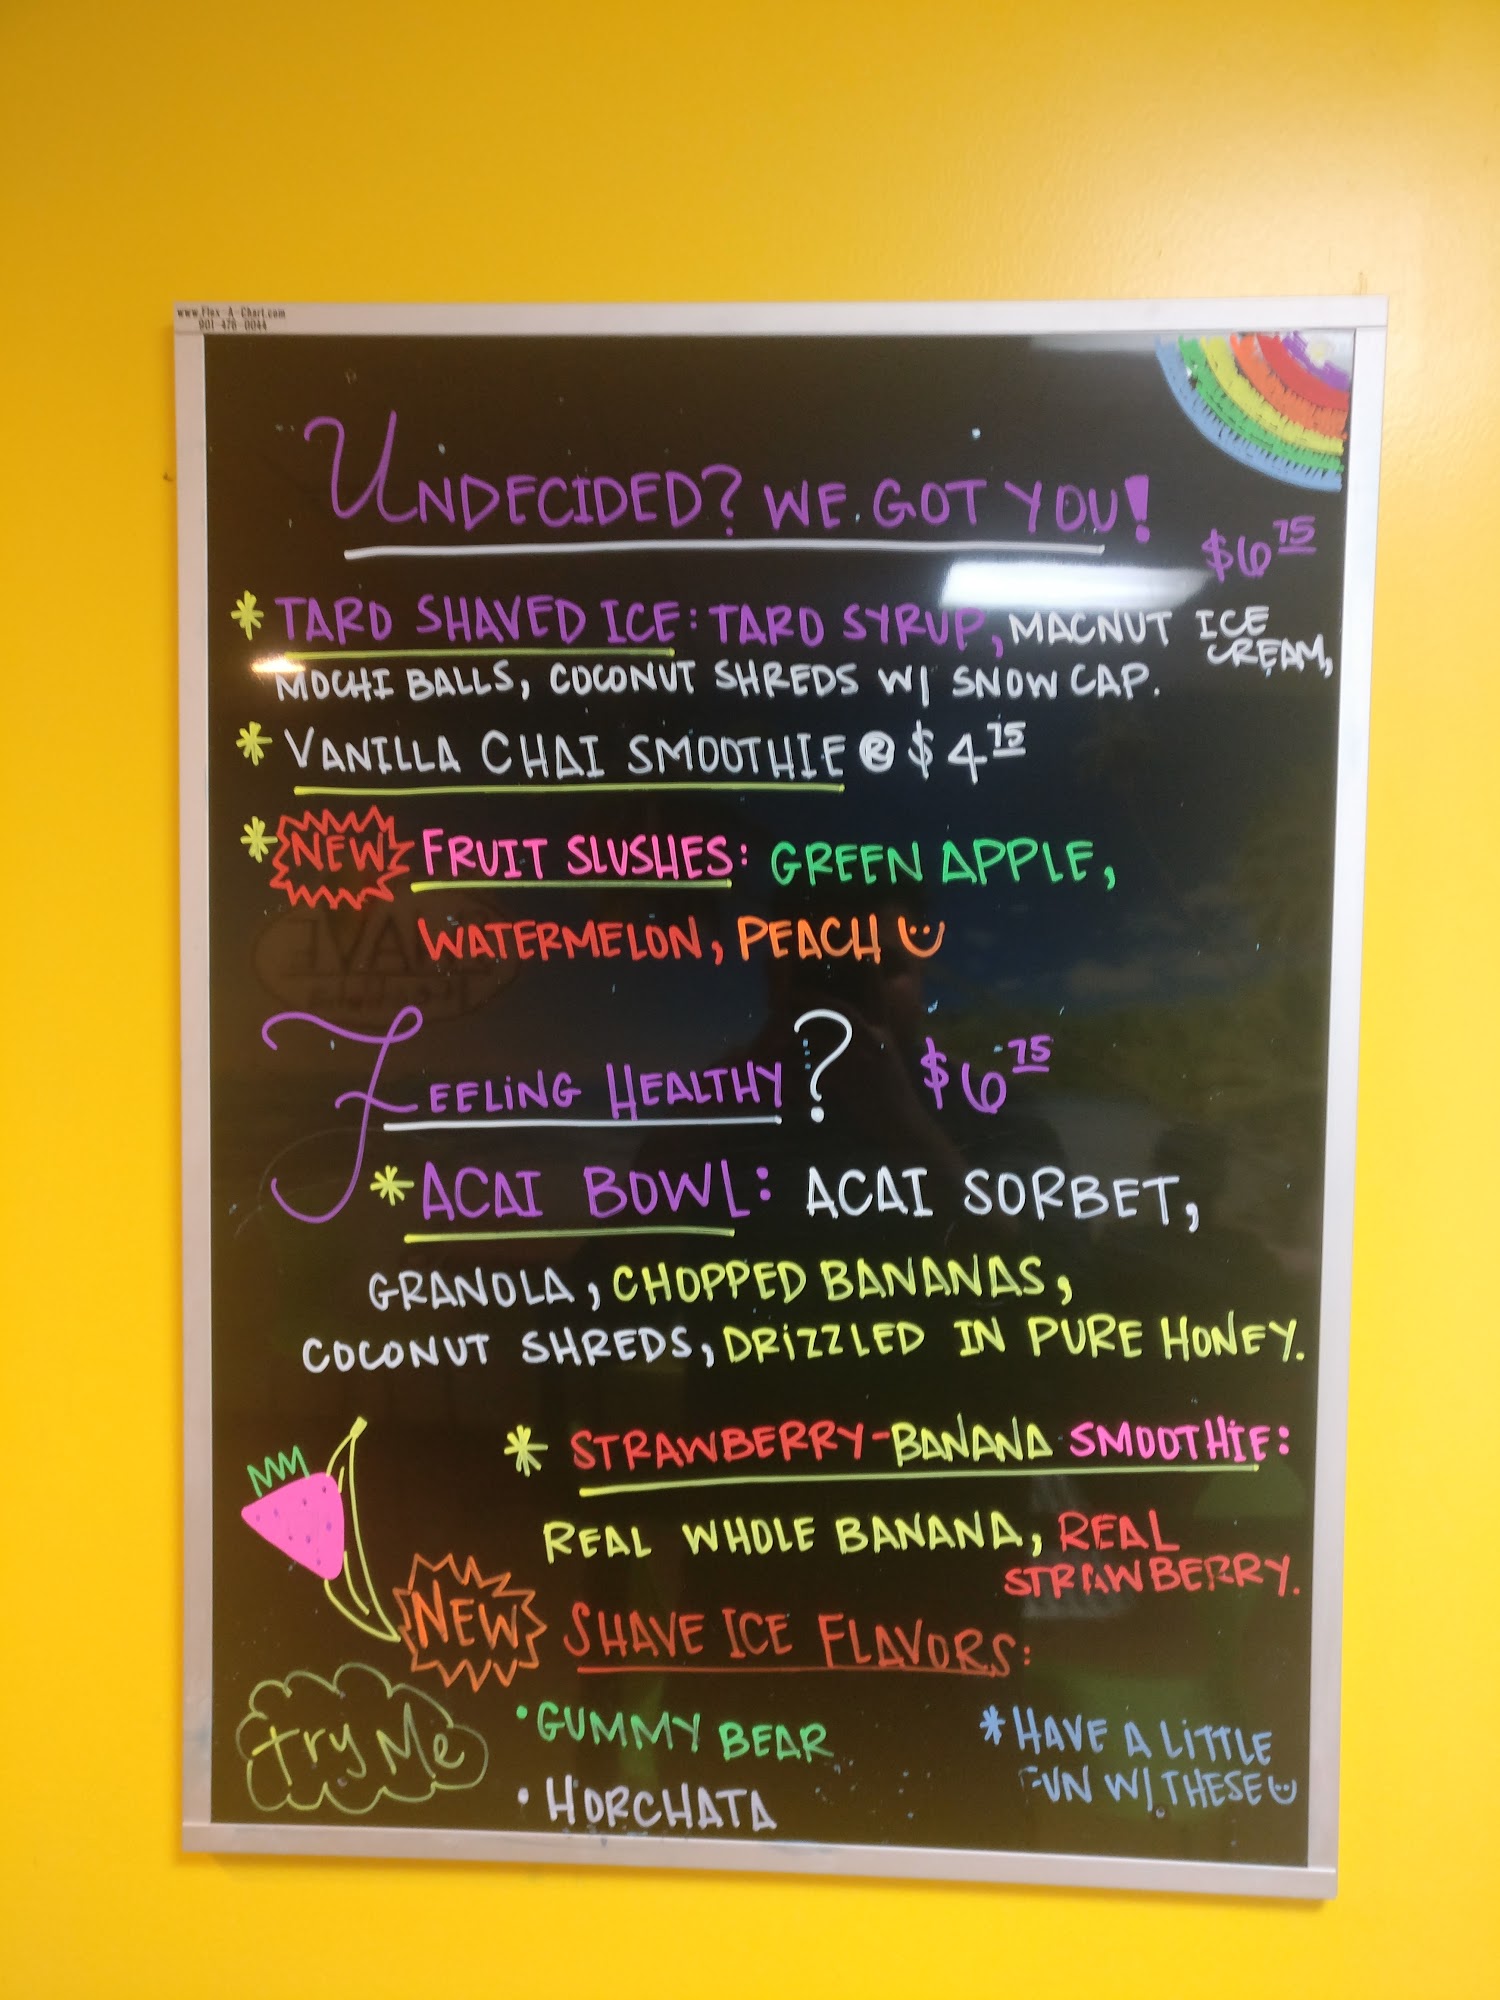 www.Flex-A-Chart.com
901-476-0044
UNDECIDED? WE GOT YOU!
$6 75
* TARO SHAVED ICE: TARO SYRUP, MACNUT ICE
CREAM,
MOCHI BALLS, COCONUT SHREDS W/ SNOW CAP.
* VANILLA CHAI SMOOTHIE ® $4 75
* NEW FRUIT SLUSHES: GREEN APPLE,
WATERMELON, PEACH
FEELING HEALTHY? $6 75
* ACAI BOWL: ACAI SORBET,
GRANOLA, CHOPPED BANANAS,
COCONUT SHREDS, DRIZZLED IN PURE HONEY.
* STRAWBERRY-BANANA SMOOTHIE:
REAL WHOLE BANANA, REAL
STRAWBERRY.
NEW SHAVE ICE FLAVORS:
Try Me
• GUMMY BEAR
• HORCHATA
* HAVE A LITTLE
FUN W/ THESE